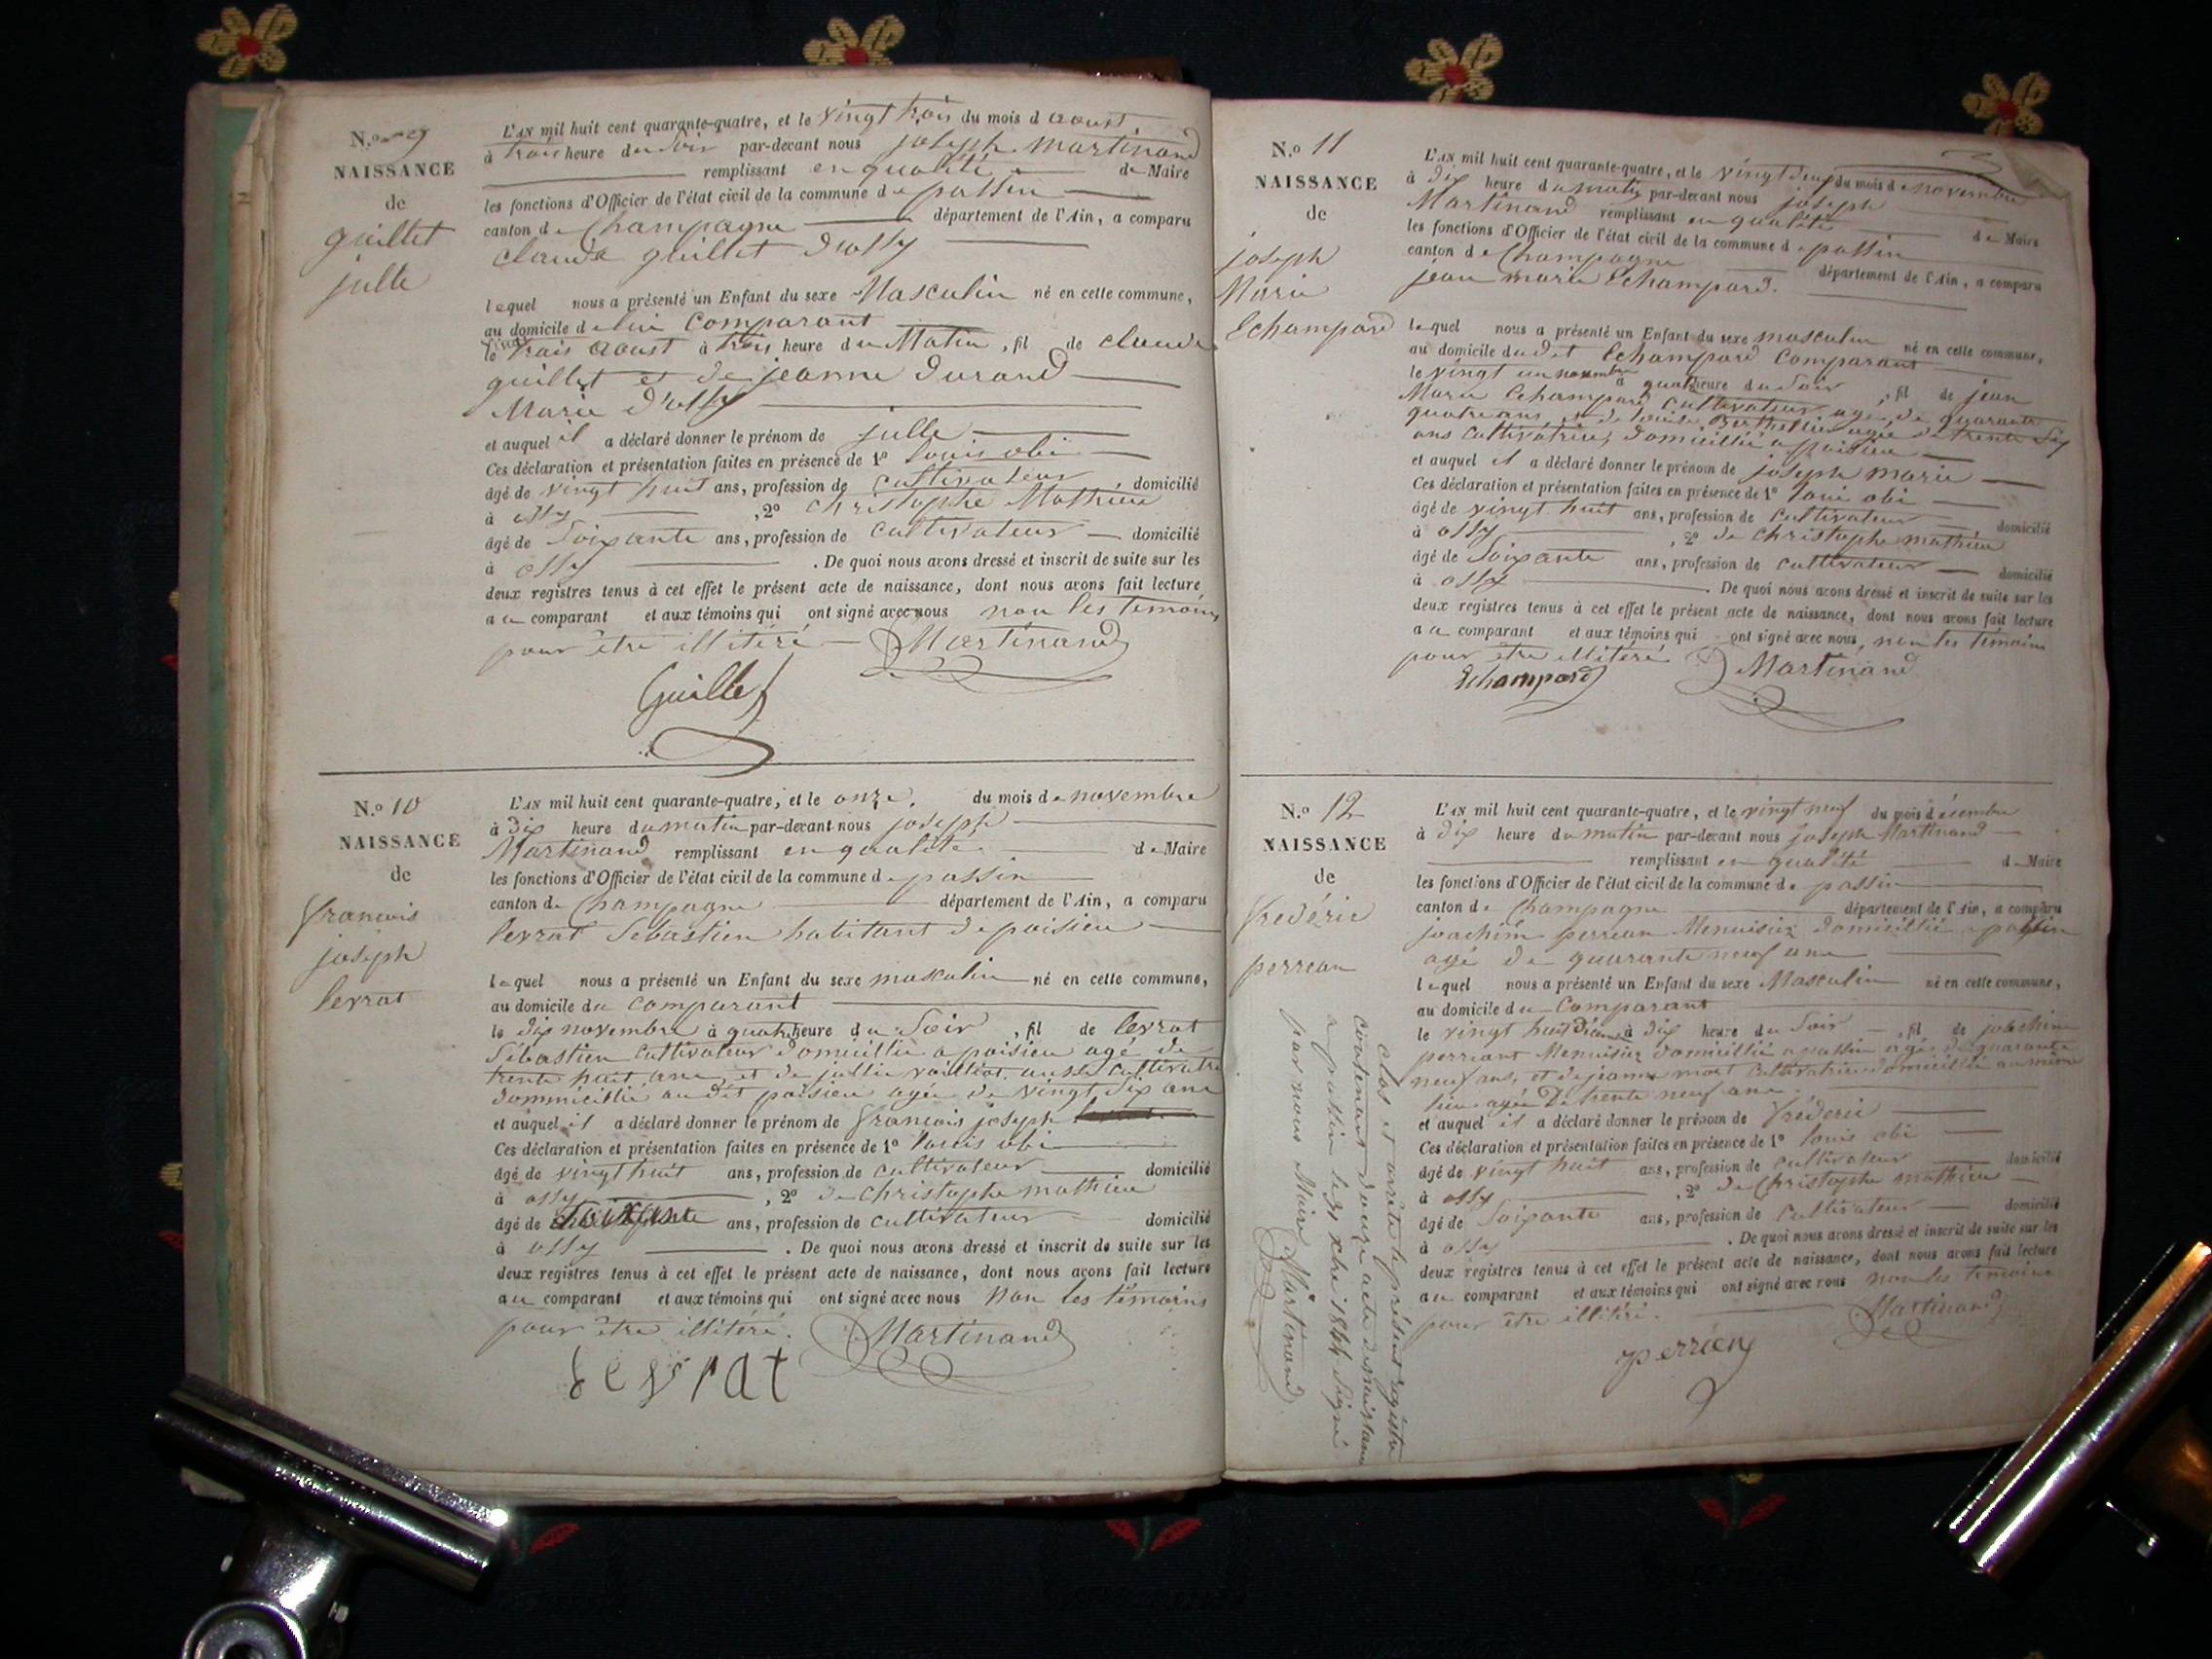 N.o 9
NAISSANCE
de
guillet
julle
L'AN mil huit cent quarante-quatre, et le vingt trois du mois d aoust
à trois heure du soir par-devant nous joseph Martinand
remplissant en qualité de Maire
les fonctions d'Officier de l'état civil de la commune de passin
canton de Champagne département de l'Ain, a comparu
claude guillet d'ossy
lequel nous a présenté un Enfant du sexe Masculin né en cette commune,
au domicile de lui Comparant
le vingt trois aoust à trois heure du Matin, fil de claude
guillet et de jeanne durand
Marie d'ossy
et auquel il a déclaré donner le prénom de julle
Ces déclaration et présentation faites en présence de 1o louis obi
âgé de vingt huit ans, profession de cultivateur domicilié
à ossy , 2o christophe Mathieu
âgé de Soixante ans, profession de cultivateur domicilié
à ossy . De quoi nous avons dressé et inscrit de suite sur les
deux registres tenus à cet effet le présent acte de naissance, dont nous avons fait lecture
au comparant et aux témoins qui ont signé avec nous non les temoins
pour être illitéré Martinand
Guillet
N.o 10
NAISSANCE
de
francois
joseph
levrat
L'AN mil huit cent quarante-quatre, et le onze du mois de novembre
à dix heure du matin par-devant nous joseph
Martinand remplissant en qualité de Maire
les fonctions d'Officier de l'état civil de la commune de passin
canton de Champagne département de l'Ain, a comparu
levrat Sebastien habitant de poisieu
lequel nous a présenté un Enfant du sexe masculin né en cette commune,
au domicile du comparant
le dix novembre à quatre heure du Soir, fil de levrat
Sébastien cultivateur domicillié a poisieu agé de
trente huit ans et de jullie cultivatre
dommicillié au dit poisieu agée de vingt dix ans
et auquel il a déclaré donner le prénom de francois joseph
Ces déclaration et présentation faites en présence de 1o louis obi
âgé de vingt huit ans, profession de cultivateur domicilié
à ossy , 2o de christophe mathieu
âgé de Soixante ans, profession de cultivateur domicilié
à ossy . De quoi nous avons dressé et inscrit de suite sur les
deux registres tenus à cet effet le présent acte de naissance, dont nous avons fait lecture
au comparant et aux témoins qui ont signé avec nous Non les témoins
pour être illitéré. Martinand
levrat
N.o 11
NAISSANCE
de
joseph
Marie
Echampard
L'AN mil huit cent quarante-quatre, et le vingt deux du mois de novembre
à dix heure du matin par-devant nous joseph
Martinand remplissant en qualité de Maire
les fonctions d'Officier de l'état civil de la commune de passin
canton de Champagne département de l'Ain, a comparu
jean marie Echampard.
lequel nous a présenté un Enfant du sexe masculin né en cette commune,
au domicile du dit Echampard Comparant
le vingt un novembre à quatre heure du Soir, fil de jean
Marie Echampard cultivateur agé de quarante
quatre ans et de louise Berthellier agée de trente six
ans cultivatrice, domicillié a poisieu
et auquel il a déclaré donner le prénom de joseph marie
Ces déclaration et présentation faites en présence de 1o loui obi
âgé de vingt huit ans, profession de cultivateur domicilié
à ossy , 2o de christophe mathieu
âgé de Soixante ans, profession de cultivateur domicilié
à ossy . De quoi nous avons dressé et inscrit de suite sur les
deux registres tenus à cet effet le présent acte de naissance, dont nous avons fait lecture
au comparant et aux témoins qui ont signé avec nous, non les témoins
pour être illitéré Martinand
Echampard
N.o 12
NAISSANCE
de
fredéric
perrean
L'AN mil huit cent quarante-quatre, et le vingt neuf du mois décembre
à dix heure du matin par-devant nous joseph Martinand
remplissant en qualité de Maire
les fonctions d'Officier de l'état civil de la commune de passin
canton de Champagne département de l'Ain, a comparu
joachim perrean Menuisier domicillié a passin
agé de quarante neuf ans
lequel nous a présenté un Enfant du sexe Masculin né en cette commune,
au domicile du Comparant
le vingt huit à dix heure du Soir, fil de joachim
perreant Menuisier domicillié a passin agée de quarante
neuf ans, et de jeanne mort cultivatrice domicillié au même
lieu agée de trente neuf ans.
et auquel il a déclaré donner le prénom de fréderic
Ces déclaration et présentation faites en présence de 1o louis obi
âgé de vingt huit ans, profession de cultivateur domicilié
à ossy , 2o de Christophe mathieu
âgé de Soixante ans, profession de Cultivateur domicilié
à ossy . De quoi nous avons dressé et inscrit de suite sur les
deux registres tenus à cet effet le présent acte de naissance, dont nous avons fait lecture
au comparant et aux témoins qui ont signé avec nous non les temoins
pour être illitéré. Martinand
clos et arrêté le présent registre
contenant douze acte de naissance
a passin le 31 xbre 1844 Signé
par nous Maire Martinand